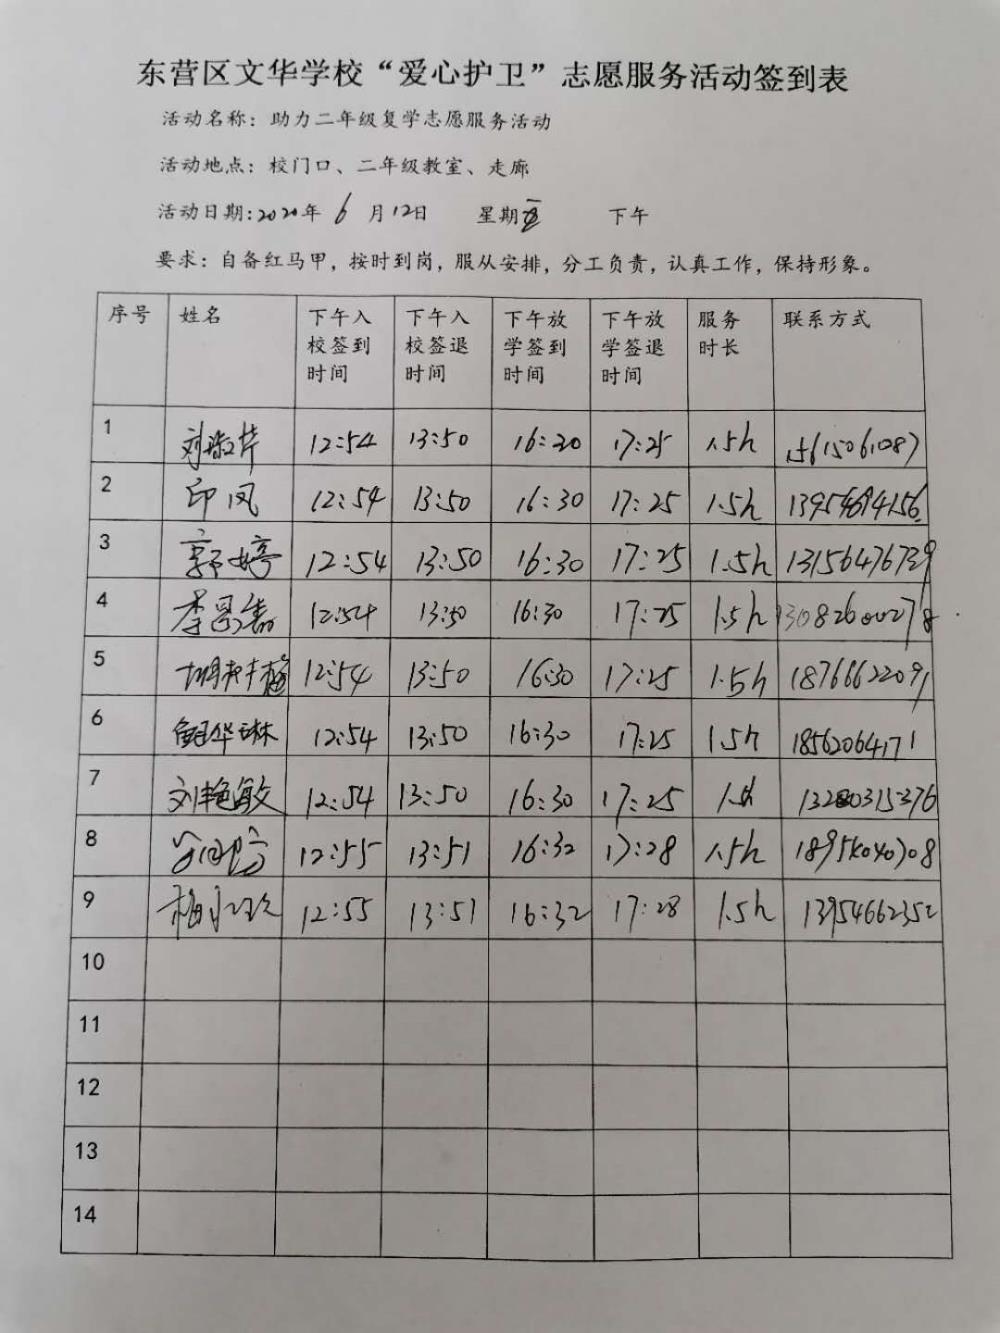 东营区文华学校“爱心护卫”志愿服务活动签到表
活动名称：助力二年级复学志愿服务活动
活动地点：校门口、二年级教室、走廊
活动日期：2020年 6 月12日 星期五 下午
要求：自备红马甲，按时到岗，服从安排，分工负责，认真工作，保持形象。
序号 姓名 下午入校签到时间 下午入校签退时间 下午放学签到时间 下午放学签退时间 服务时长 联系方式
1 12:54 13:50 16:20 17:25 1.5h 15615061087
2 印凤 12:54 13:50 16:30 17:25 1.5h 13954694156
3 郭婷 12:54 13:50 16:30 17:25 1.5h 13156476739
4 12:54 13:50 16:30 17:25 1.5h 13082600278
5 12:54 13:50 16:30 17:25 1.5h 18766622091
6 12:54 13:50 16:30 17:25 1.5h 18562064171
7 刘艳敏 12:54 13:50 16:30 17:25 1.5h 13280315376
8 12:55 13:51 16:32 17:28 1.5h
9 12:55 13:51 16:32 17:28 1.5h 13954662352
10
11
12
13
14